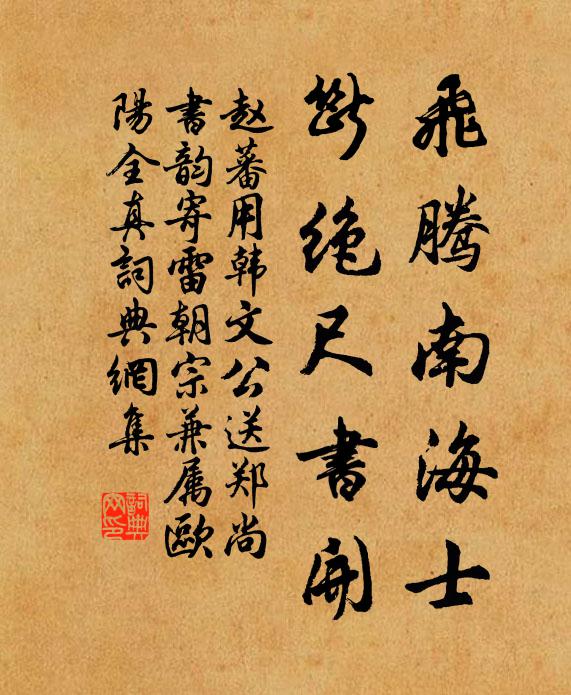 飛騰南海士
斷絶尺書開
赵蕃用韩文公送郑尚
書韵寄雷朝宗兼属歐
陽全真詞典網集
詞典